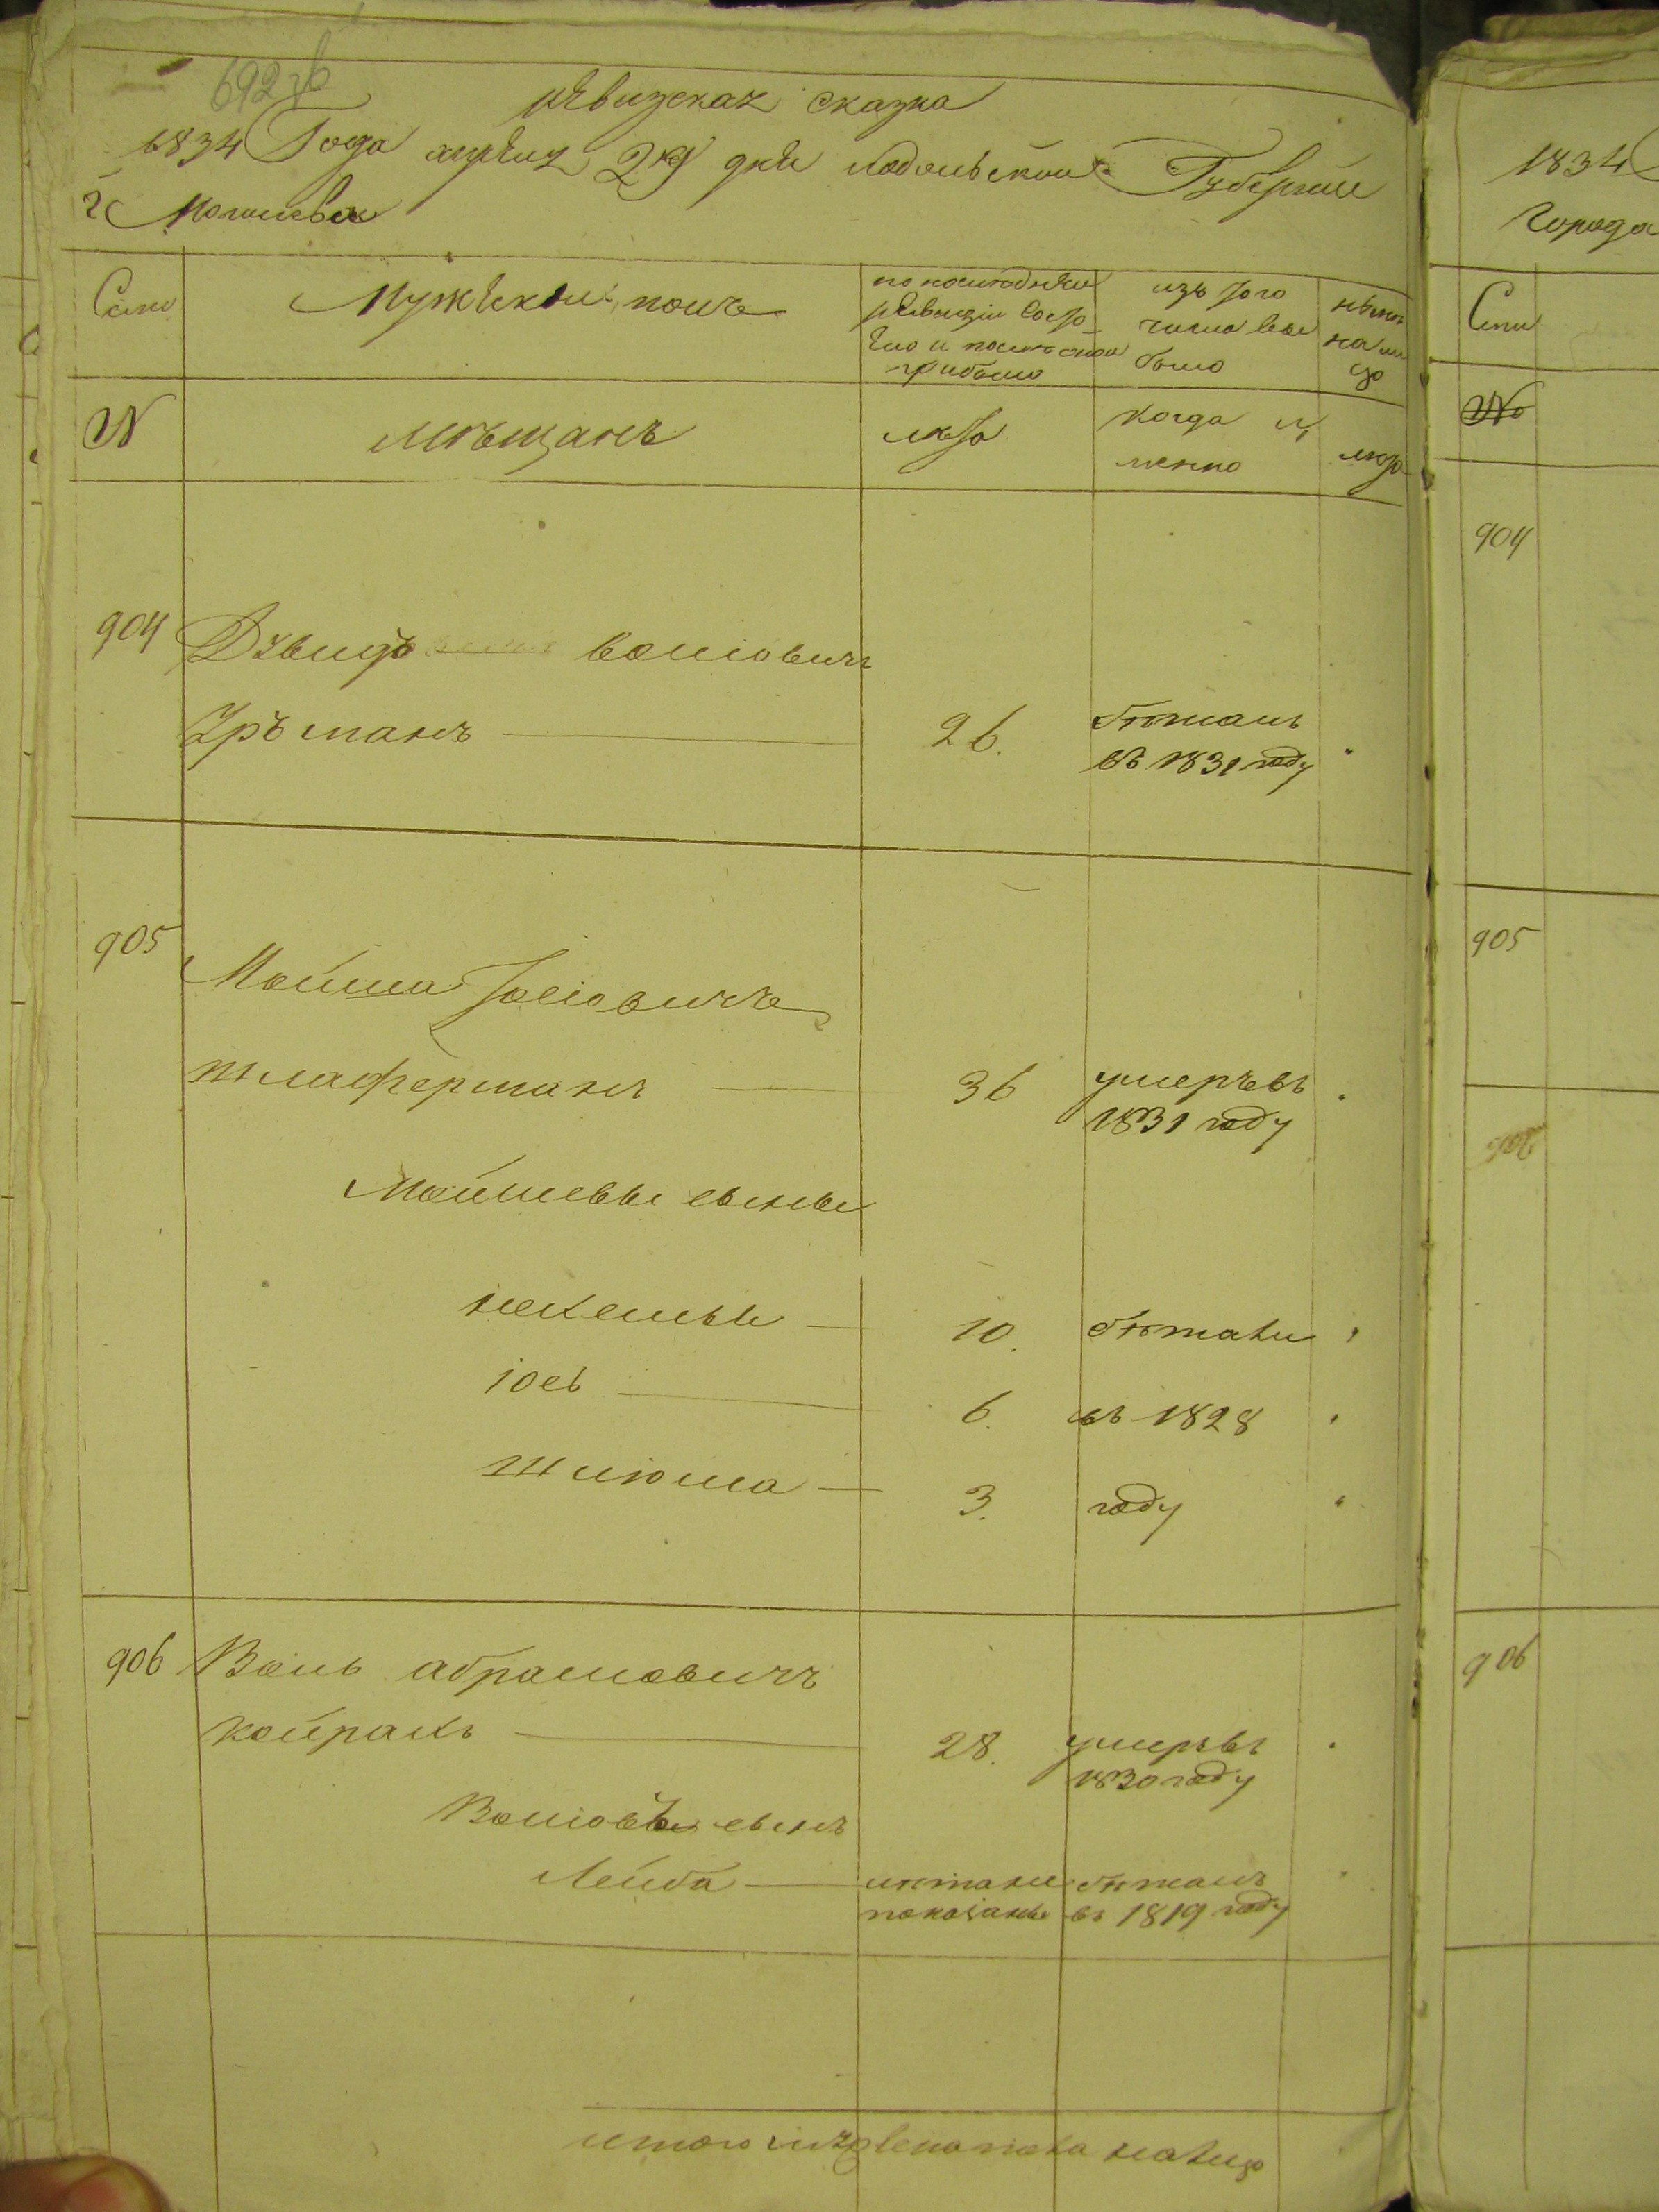 692 об
ревизская сказка
1834 Года апреля 29 дня подольской Губернии
г Могилева
Семи
Мужеской полъ
по последней
ревизии состо
яло и после оной
прибыло
изъ того
числа вы
было
ныне
на ли
цо
N
мѣщанъ
лета
когда и
менно
лета
904
Давидъ Волиовичъ
Урѣманъ
26.
бѣжалъ
въ 1831 году
905
Мойша Іосіовичъ
шлаферманъ
36
умеръ въ
1831 году
Мойшевы сыны
10.
бѣжали
іось
6.
въ 1828
шлюма
3.
году
906
Воль абрамовичъ
койрахъ
28.
умеръ въ
1830 году
Волиовъ сынъ
Лейба
показанъ
бѣжалъ
въ 1819 году
итого налицо
1834
Города
Семи
№
904
905
906
906